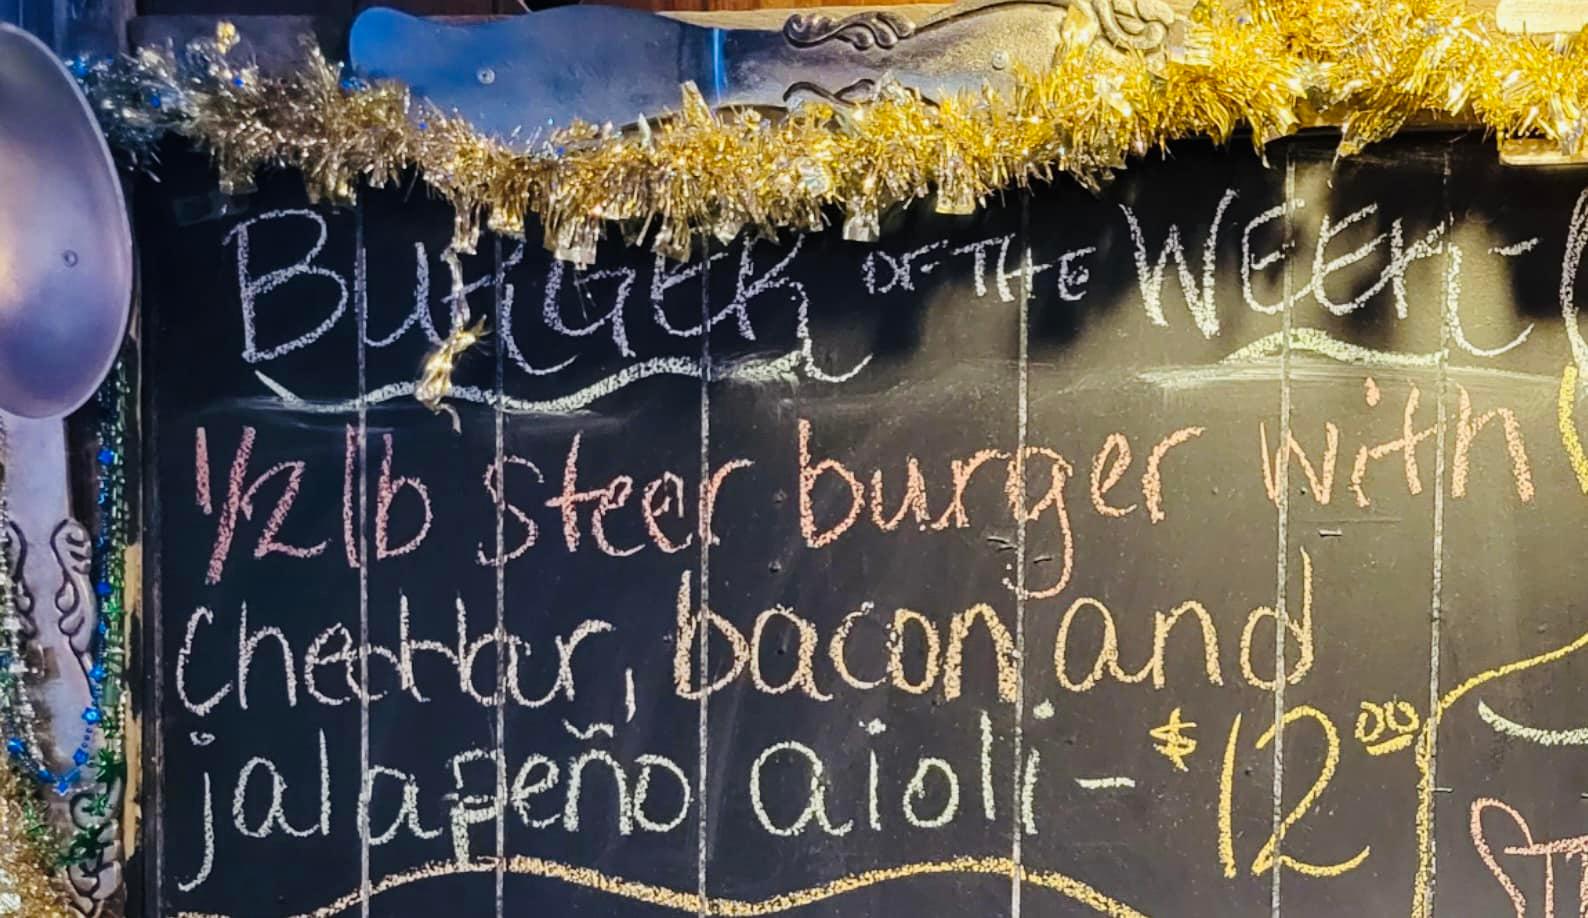 BURGER OF THE WEEK -
1/2 lb steer burger with
cheddar, bacon and
jalapeño aioli - $12.00